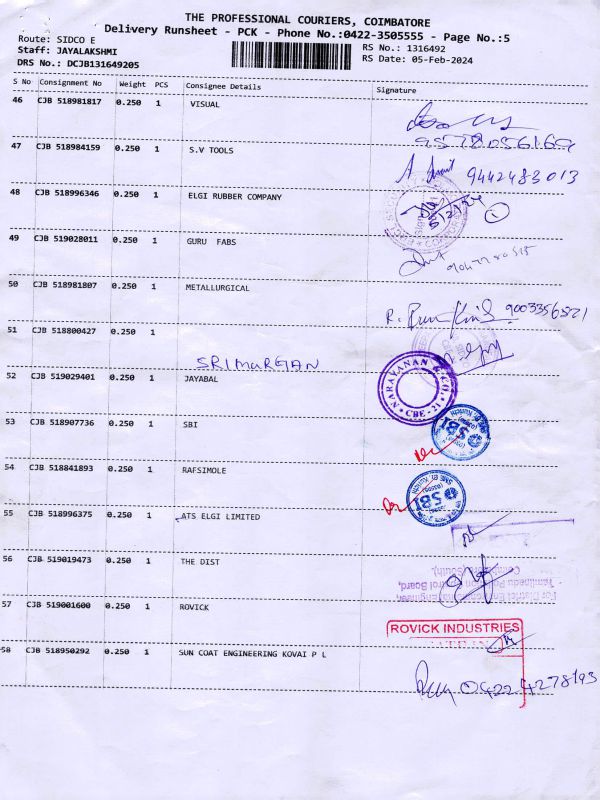 THE PROFESSIONAL COURIERS, COIMBATORE
Delivery Runsheet - PCK - Phone No.:0422-3505555 - Page No.:5
Route: SIDCO E
RS No.: 1316492
Staff: JAYALAKSHMI
RS Date: 05-Feb-2024
DRS No.: DCJB131649205
S No Consignment No Weight PCS Consignee Details Signature
46 CJB 518981817 0.250 1 VISUAL
9578056169
47 CJB 518984159 0.250 1 S.V TOOLS
9442483013
48 CJB 518996346 0.250 1 ELGI RUBBER COMPANY
49 CJB 519028011 0.250 1 GURU FABS
50 CJB 518981807 0.250 1 METALLURGICAL
R. 9003356521
51 CJB 518800427 0.250 1
SRIMURGAN
52 CJB 519029401 0.250 1 JAYABAL
NARAYANAN & CO. CBE - 21
53 CJB 518907736 0.250 1 SBI
SBI
54 CJB 518841893 0.250 1 RAFSIMOLE
SBI
55 CJB 518996375 0.250 1 ATS ELGI LIMITED
56 CJB 519019473 0.250 1 THE DIST
For District Environmental Engineer,
Tamilnadu Pollution Control Board,
Coimbatore (South).
57 CJB 519001600 0.250 1 ROVICK
ROVICK INDUSTRIES
58 CJB 518950292 0.250 1 SUN COAT ENGINEERING KOVAI P L
0422 4278193